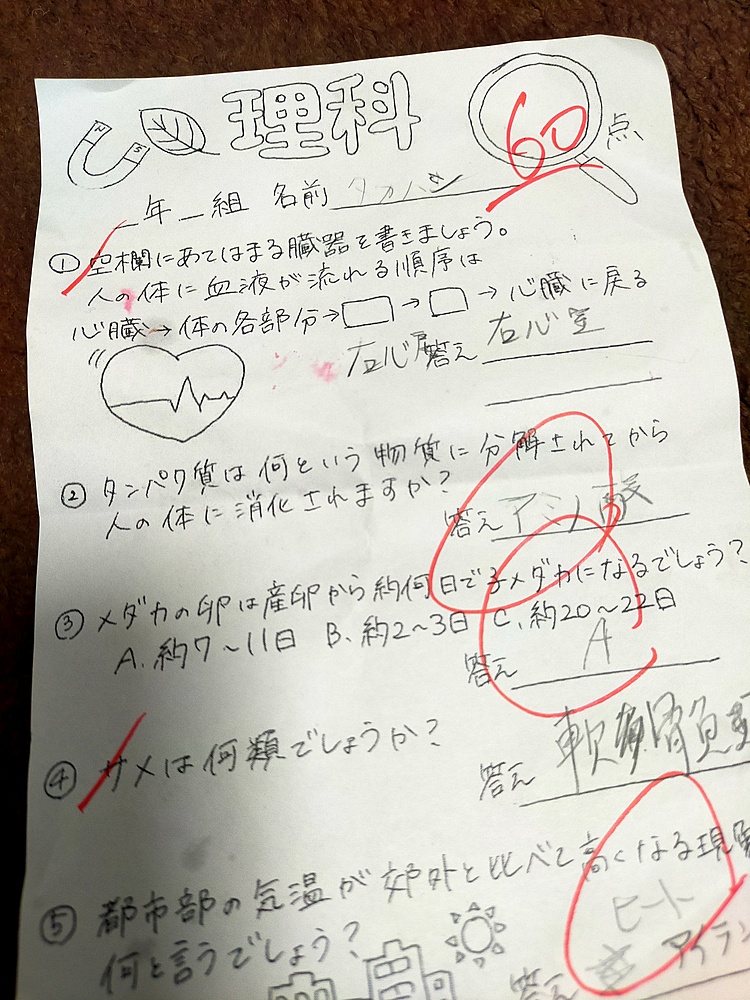 理科
60点
N S
_年_組 名前 タカハシ
① 空欄にあてはまる臓器を書きましょう。
人の体に血液が流れる順序は
心臓→体の各部分→□→□→心臓に戻る
右心房 答え 右心室
② タンパク質は何という物質に分解されてから
人の体に消化されますか?
答え アミノ酸
③ メダカの卵は産卵から約何日で子メダカになるでしょう?
A. 約7〜11日 B. 約2〜3日 C. 約20〜22日
答え A
④ サメは何類でしょうか?
答え 軟骨魚類
⑤ 都市部の気温が郊外と比べて高くなる現象
何と言うでしょう?
ヒート
答え アイラン